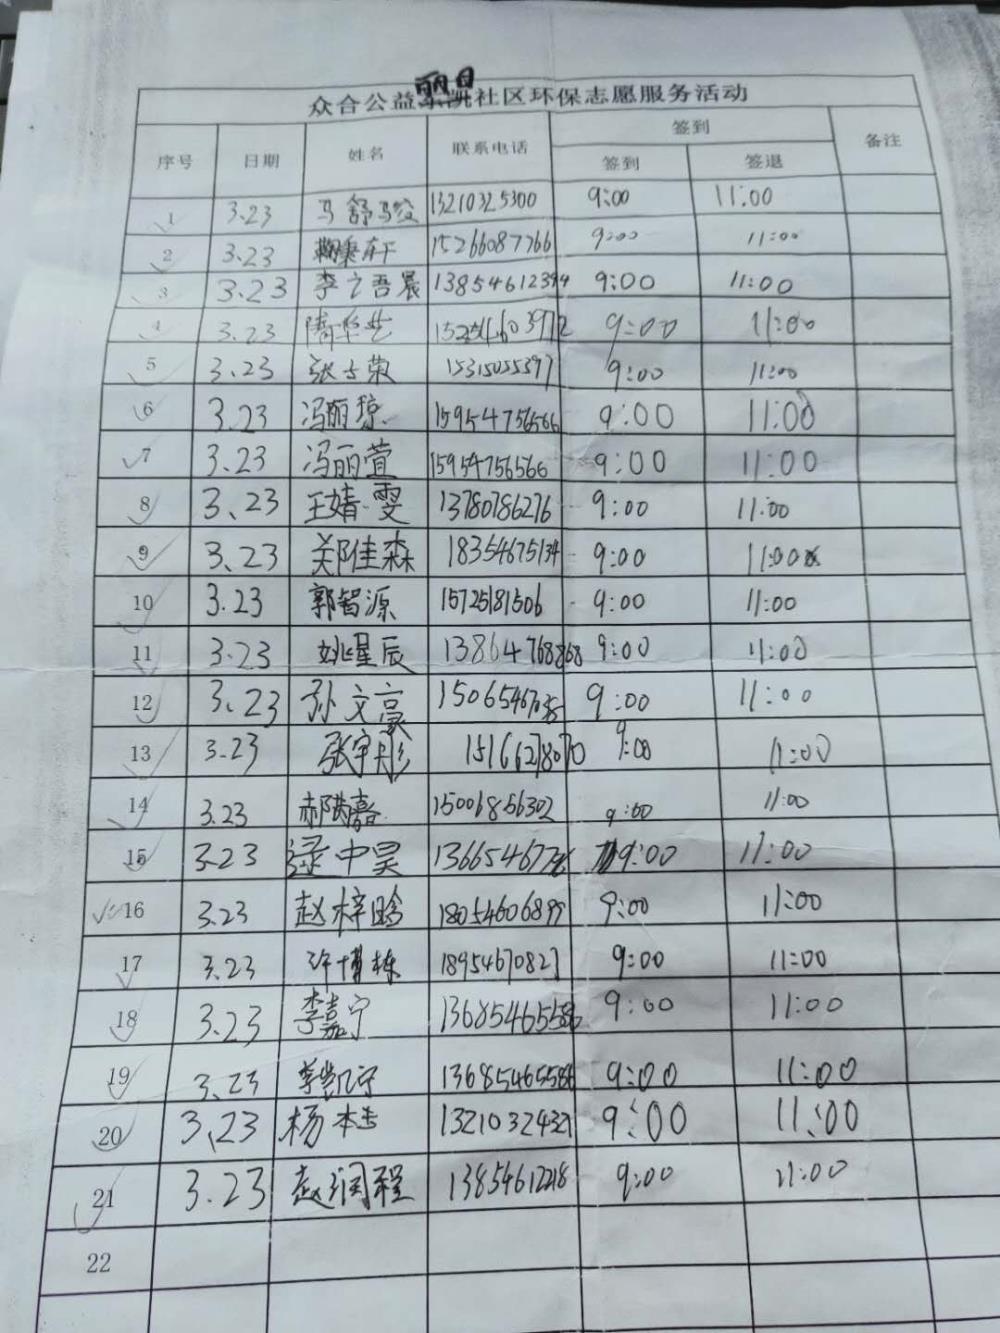 丽日
众合公益社区环保志愿服务活动
序号 日期 姓名 联系电话 签到 备注
签到 签退
1 3.23 马舒骏 13210325300 9:00 11:00
2 3.23 轩 15266087766 9:00 11:00
3 3.23 李之吾晨 13854612394 9:00 11:00
4 3.23 9:00 11:00
5 3.23 张子荣 15315055397 9:00 11:00
6 3.23 冯丽琼 15954756566 9:00 11:00
7 3.23 冯丽萱 15954756566 9:00 11:00
8 3.23 王婧雯 13780786276 9:00 11:00
9 3.23 郑佳森 18354675134 9:00 11:00
10 3.23 郭智源 15725181506 9:00 11:00
11 3.23 姚星辰 13864768868 9:00 11:00
12 3.23 孙文豪 9:00 11:00
13 3.23 张宇彤 15166278070 9:00 11:00
14 3.23 郝嘉 15006856302 9:00 11:00
15 3.23 中昊 9:00 11:00
16 3.23 赵梓晗 18054606899 9:00 11:00
17 3.23 许博栋 18954670827 9:00 11:00
18 3.23 李嘉宁 13685465586 9:00 11:00
19 3.23 李凯宁 13685465586 9:00 11:00
20 3.23 杨 13210324327 9:00 11:00
21 3.23 赵润程 13854612218 9:00 11:00
22